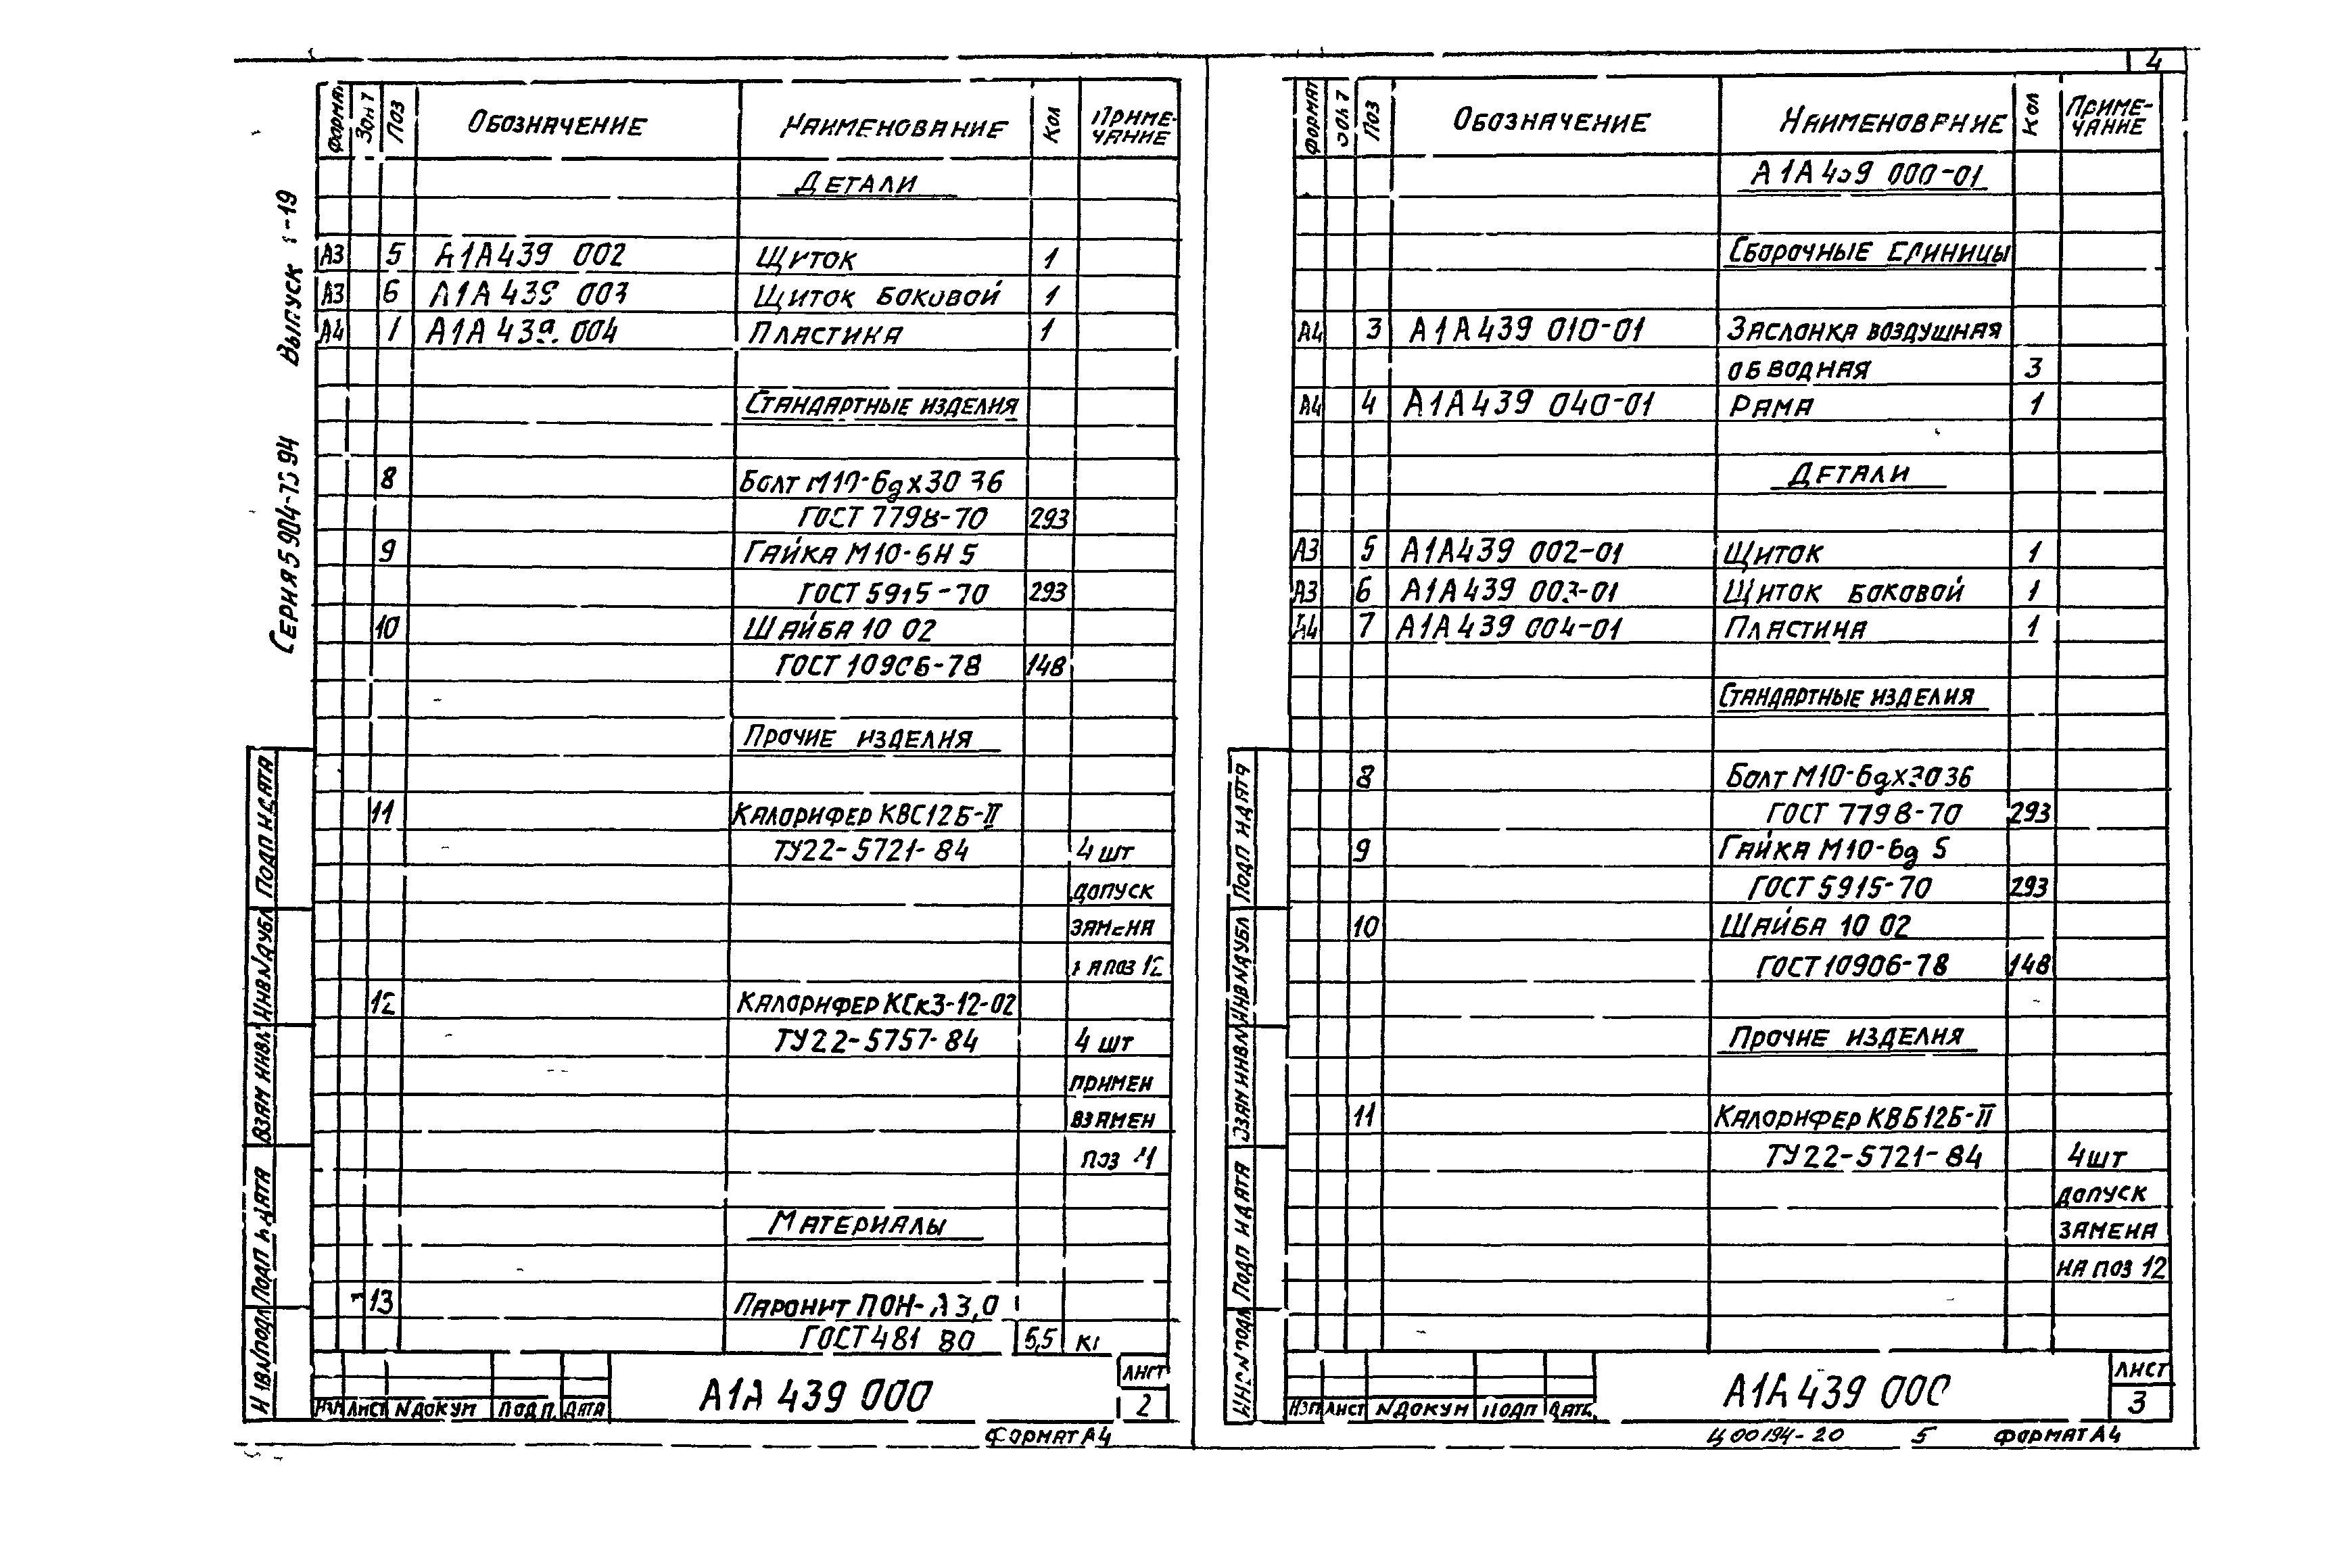 4
Серия 5 904-75 94 Выпуск 1-19
Формат Зона Поз Обозначение Наименование Кол Приме-
чание
Детали
А3 5 А1А439 002 Щиток 1
А3 6 А1А439 003 Щиток боковой 1
А4 А1А439.004 Пластика 1
Стандартные изделия
8 Болт М10-6gх30 36
ГОСТ 7798-70 293
9 Гайка М10-6Н 5
ГОСТ 5915-70 293
10 Шайба 10 02
ГОСТ 10906-78 148
Прочие изделия
11 Калорифер КВС12Б-II
ТУ22-5721-84 4 шт
допуск
замена
на поз 12
12 Калорифер КСк3-12-02
ТУ22-5757-84 4 шт
примен
взамен
поз 11
Материалы
13 Паронит ПОН-А3,0
ГОСТ 481 80 5,5 кг
Инв N подл Подп и дата Взам инв N Инв N дубл Подп и дата
Изм Лист N докум Подп. Дата
А1А 439 000
Лист
2
Формат А4
Формат Зона Поз Обозначение Наименование Кол Приме-
чание
А1А 439 000-01
Сборочные единицы
А4 3 А1А439 010-01 Заслонка воздушная
обводная 3
А4 4 А1А439 040-01 Рама 1
Детали
А3 5 А1А439 002-01 Щиток 1
А3 6 А1А439 003-01 Щиток боковой 1
А4 7 А1А439 004-01 Пластина 1
Стандартные изделия
8 Болт М10-6gх30 36
ГОСТ 7798-70 293
9 Гайка М10-6g 5
ГОСТ 5915-70 293
10 Шайба 10 02
ГОСТ 10906-78 148
Прочие изделия
11 Калорифер КВБ12Б-II
ТУ22-5721-84 4шт
допуск
замена
на поз 12
Инв N подл Подп и дата Взам инв N Инв N дубл Подп и дата
Изм Лист N докум Подп Дата
А1А 439 000
Лист
3
Ц00194-20 5 Формат А4